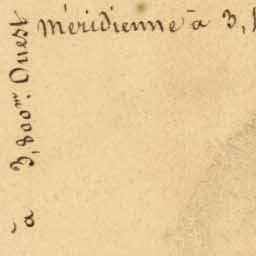 méridienne à 3,
à 3,800m. Ouest